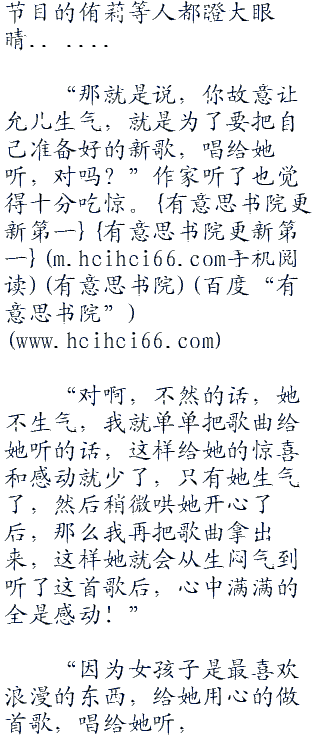 节目的侑莉等人都瞪大眼
睛.. ....
“那就是说，你故意让
允儿生气，就是为了要把自
己准备好的新歌，唱给她
听，对吗？”作家听了也觉
得十分吃惊。{有意思书院更
新第一}{有意思书院更新第
一}(m.hcihci66.com手机阅
读)(有意思书院)(百度“有
意思书院”)
(www.hcihci66.com)
“对啊，不然的话，她
不生气，我就单单把歌曲给
她听的话，这样给她的惊喜
和感动就少了，只有她生气
了，然后稍微哄她开心了
后，那么我再把歌曲拿出
来，这样她就会从生闷气到
听了这首歌后，心中满满的
全是感动！”
“因为女孩子是最喜欢
浪漫的东西，给她用心的做
首歌，唱给她听，